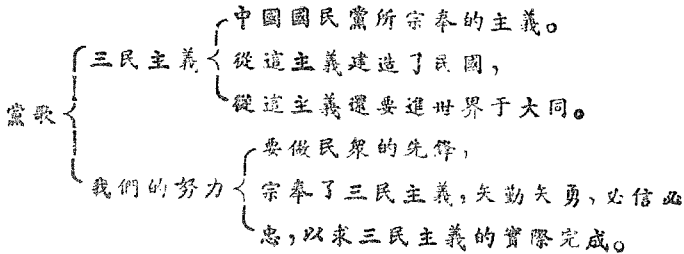 黨歌
三民主義
中國國民黨所宗奉的主義。
從這主義建造了民國，
從這主義還要進世界于大同。
我們的努力
要做民衆的先鋒，
宗奉了三民主義，矢勤矢勇、必信必
忠，以求三民主義的實際完成。